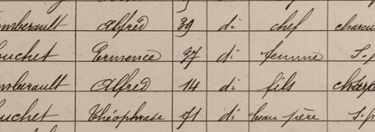 mberault Alfred 39 di chef charcu
uchet Ermence 37 di femme S.p
mberault Alfred 14 di fils charc
uchet Théophrase 71 di beau père S.p